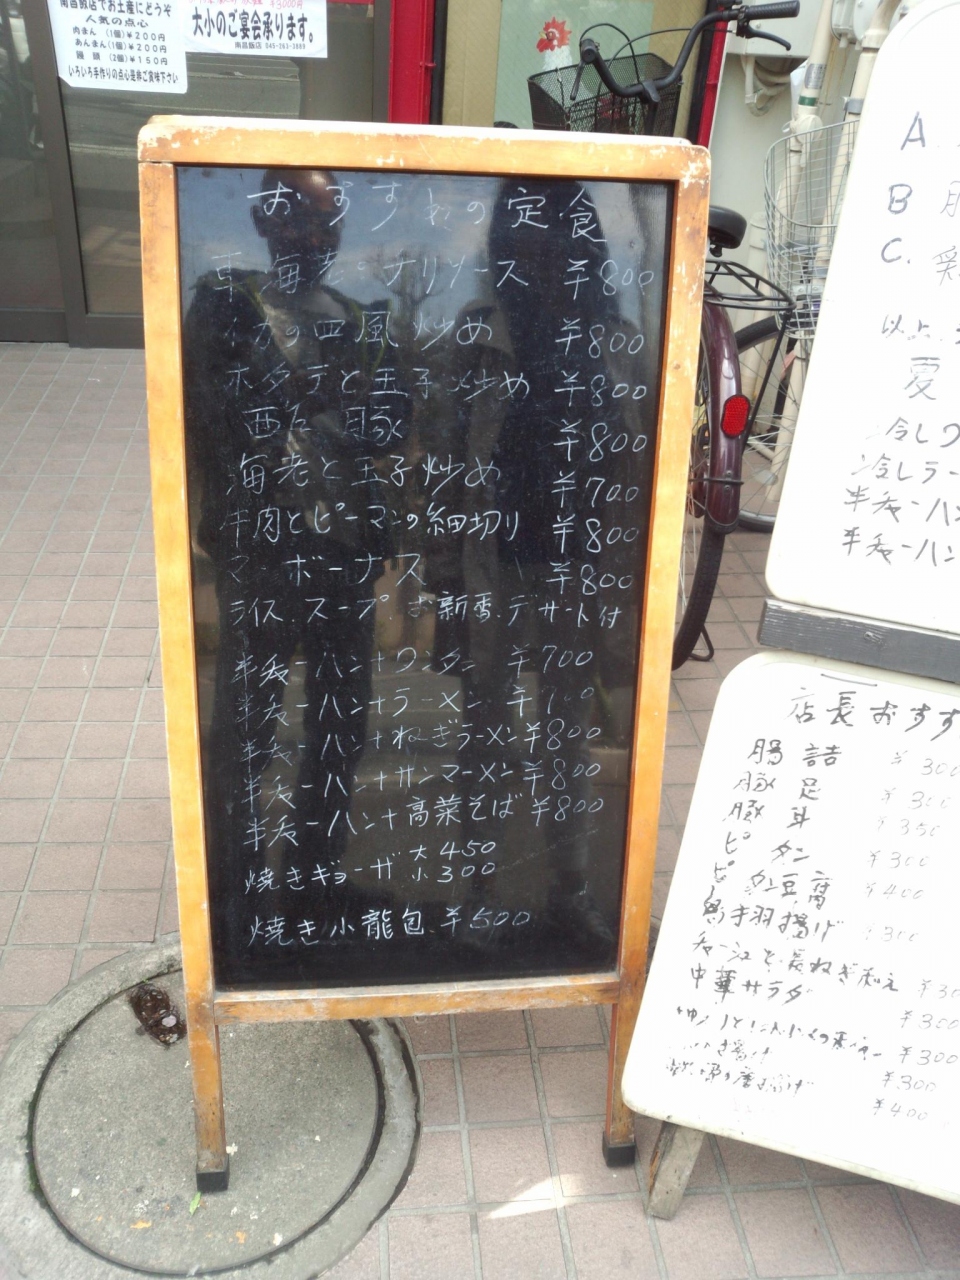 南昌飯店でお土産にどうぞ
人気の点心
肉まん (1個)¥200円
あんまん(1個)¥200円
饅頭 (2個)¥150円
いろいろ手作りの点心是非ご賞味下さい
大小のご宴会承ります。
南昌飯店
おすすめの定食
海老のチリソース ¥800
イカの四風炒め ¥800
ホタテと玉子炒め ¥800
豚 ¥800
海老と玉子炒め ¥700
牛肉とピーマンの細切り ¥800
マーボーナス ¥800
ライス.スープ.お新香.デザート付
半チャーハン+ワンタン ¥700
半チャーハン+ラーメン ¥
半チャーハン+ねぎラーメン¥800
半チャーハン+サンマーメン¥800
半チャーハン+高菜そば ¥800
焼きギョーザ 大450
小300
焼き小龍包 ¥500
A.
B
C.
以上
夏
冷し
冷しラー
半チャーハン
半チャーハン
店長おすす
腸詰 ¥300
豚足 ¥300
豚耳 ¥350
ピータン ¥300
ピータン豆腐 ¥400
鳥手羽揚げ ¥300
チャーシューと長ねぎ和え ¥30
中華サラダ ¥300
¥300
¥300
¥400